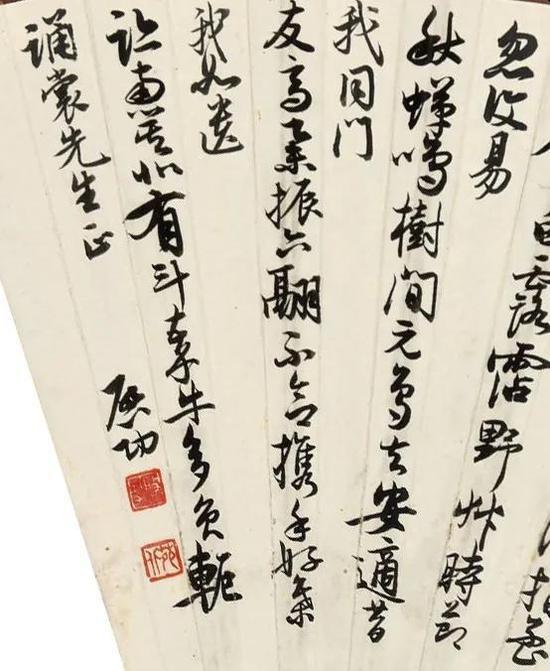 指孟
白露霑野艸時節
忽復易
秋蟬鳴樹間元鳥去安適昔
我同門
友高舉振六翮不念攜手好棄
我如遺
跡南箕北有斗牽牛多負軛
誦裳先生正
啟功